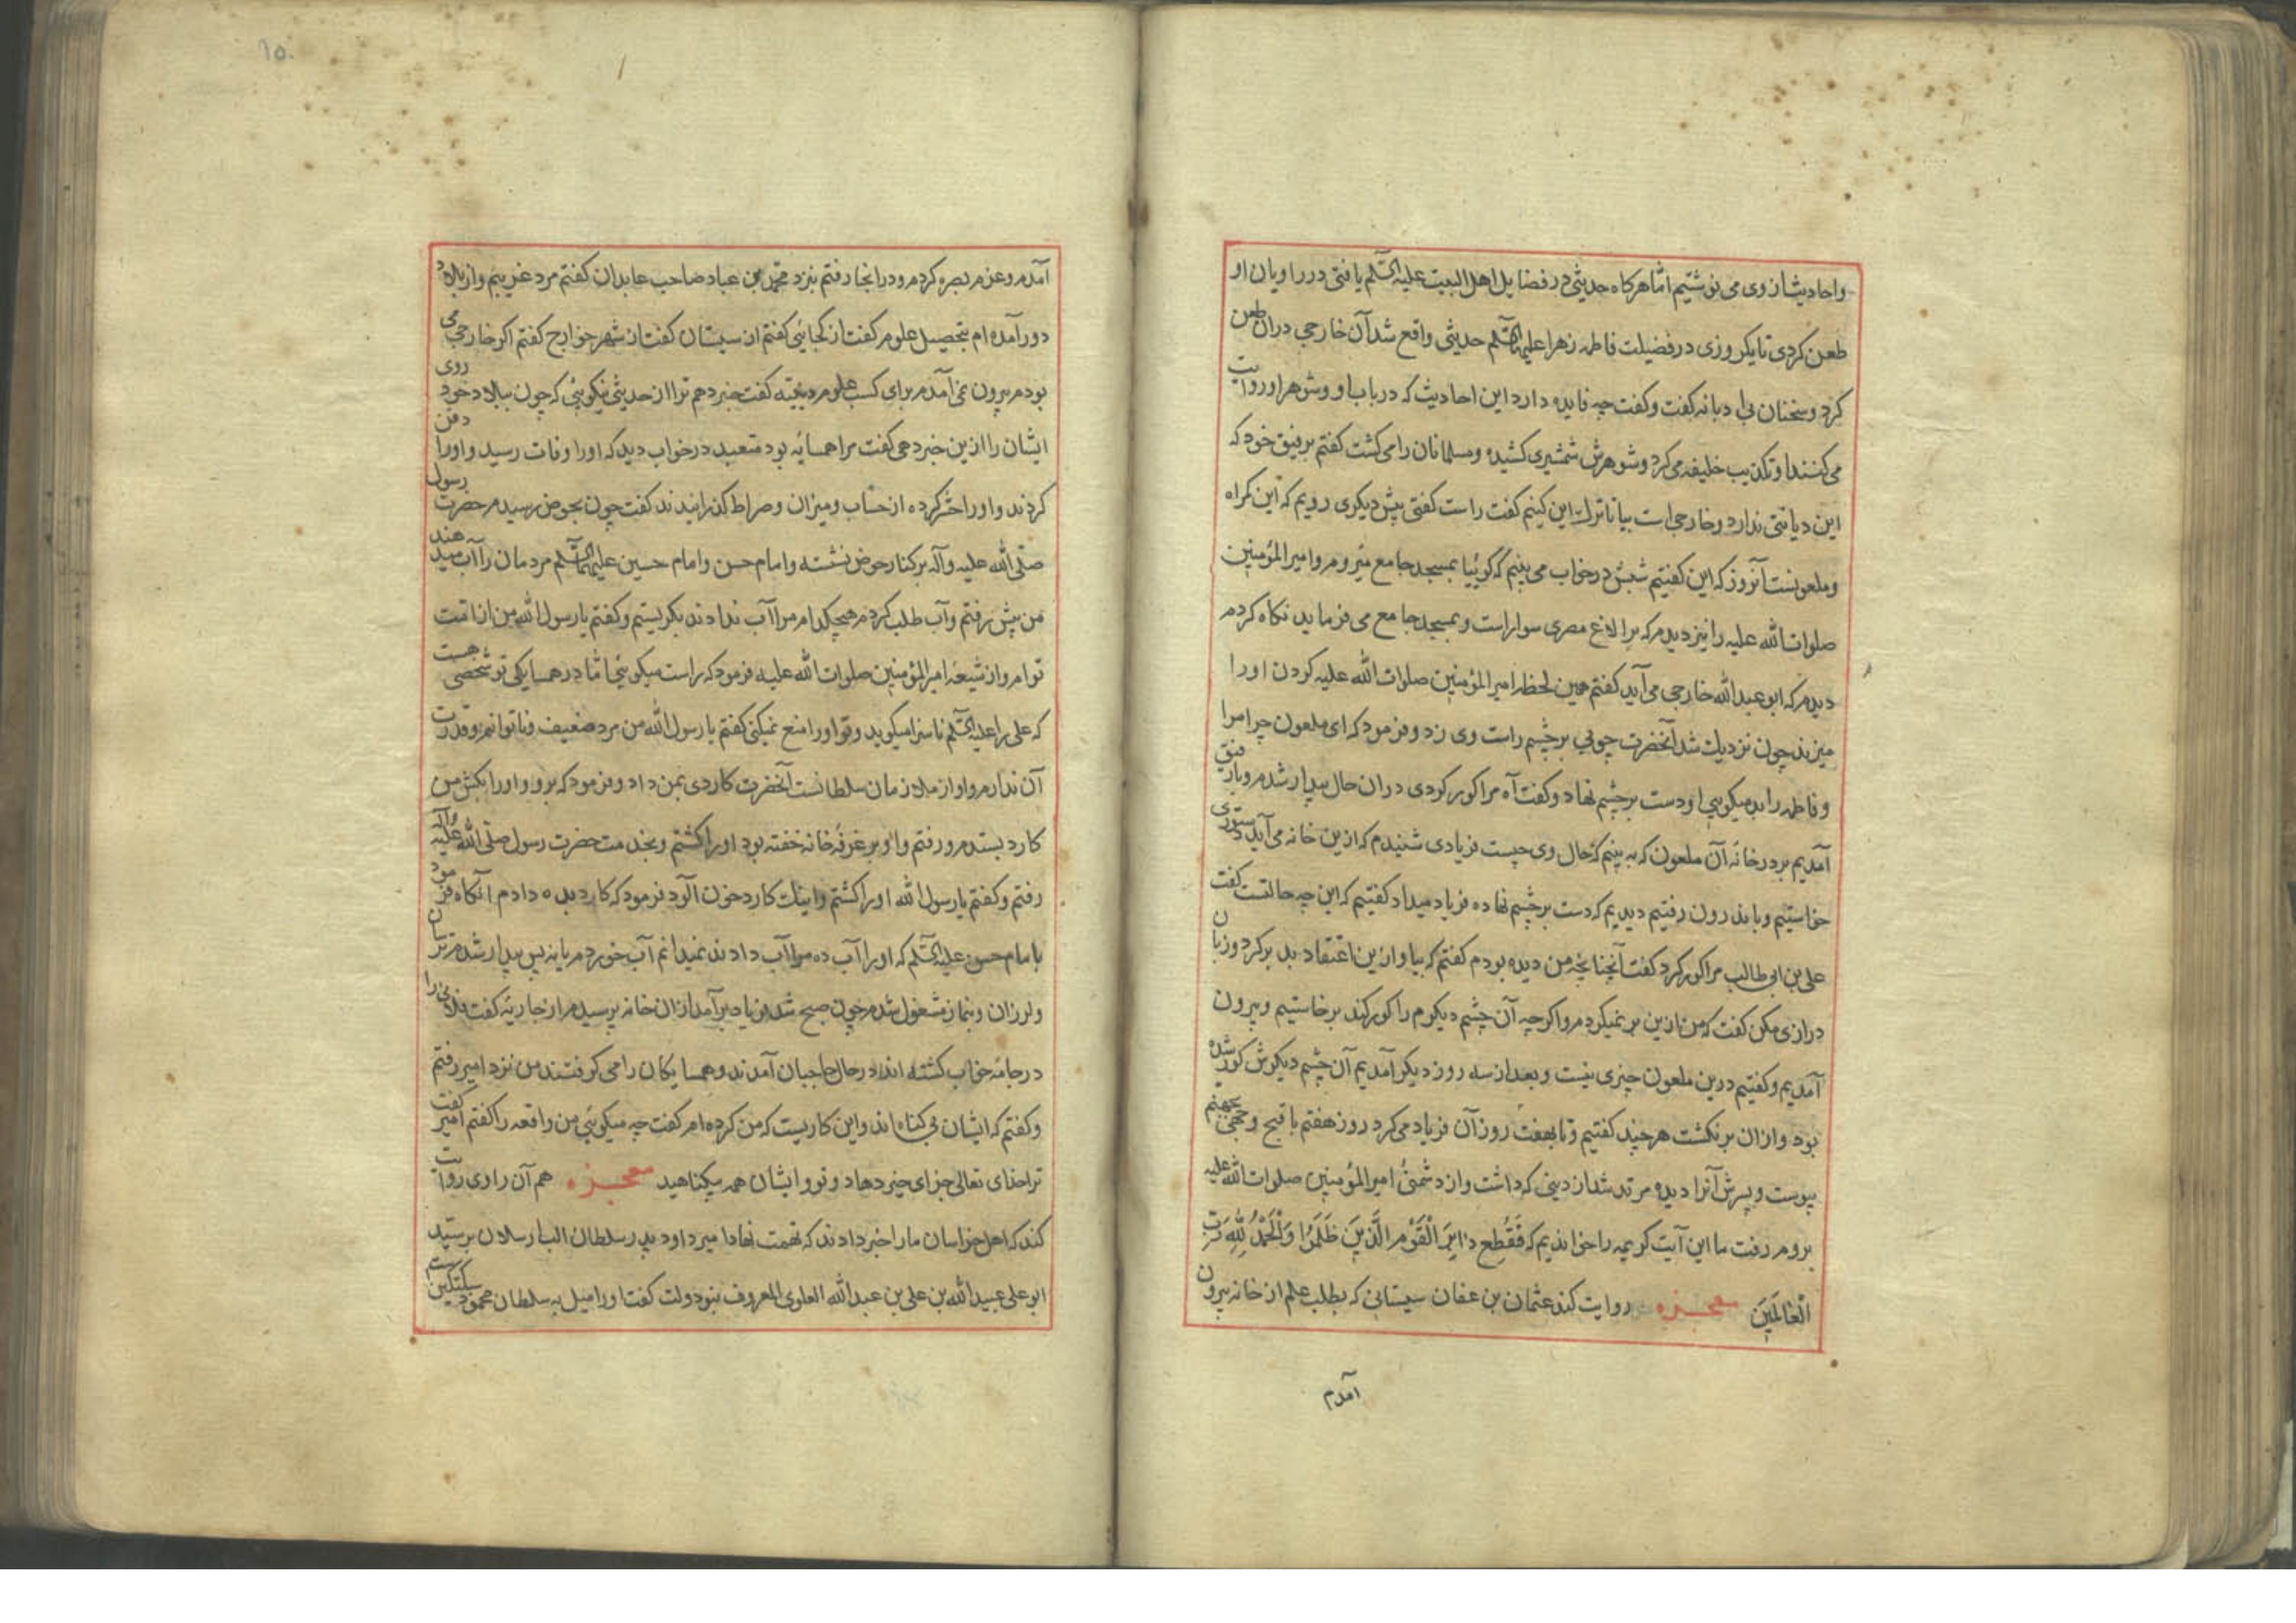 واحادیث از وی می نوشتیم امّا هرکاه حدیثی در فضایل اهل البیت علیهم السّلم یافتی در راویان او
طعن کردی تا یکروزی در فضیلت فاطمه زهرا علیها السّلم حدیثی واقع شد آن خارجی دران طعن
کرد و سخنان بی ادبانه کفت و کفت چه فایده دارد این احادیث که در باب او وشوهر او روایت
می کنند او تکذیب خلیفه می کرد و شوهرش شمشیری کشیده ومسلمانان را می کشت کفتم برفیق خود که
این دیانتی ندارد و خارجی است بیا تا ترک این کنیم کفت راست کفتی پیش دیکری رویم که این کمراه
و ملعونست آنروز که این کفتیم شبش در خواب می بینم که کوئیا بمسجد جامع میروم و امیر المؤمنین
صلوات الله علیه را نیز دیدم که برالاغ مصری سوار است و بمسجد جامع می فرماید نکاه کردم
دیدم که ابو عبدالله خارجی می آید کفتم همین لحظه امیر المؤمنین صلوات الله علیه کردن اورا
میزند چون نزدیک شد آنحضرت چوبی برچشم راست وی زد و فرمود که ای ملعون چرا مرا
و فاطمه را بد میکویی او دست برچشم نهاد و کفت آه مرا کور کردی دران حال بیدار شدم و با رفیق
آمدیم بر در خانه آن ملعون که به بینم که حال وی چیست فریادی شنیدم که ازین خانه می آید دستوری
خواستیم و باندرون رفتیم دیدیم که دست برچشم نهاده فریاد میداد کفتیم که این چه حالتست کفت
علی بن ابی طالب مرا کور کرد کفت آنچنانچه من دیده بودم کفتم که بیا و ازین اعتقاد بد برکرد و زبان
درازی مکن کفت که من ازین بر نمیکردم و اکرچه آن چشم دیکرم را کور کند برخاستیم و بیرون
آمدیم و کفتیم درین ملعون چیزی نیست و بعد از سه روز دیکر آمدیم آن چشم دیکرش کور شده
بود و ازان برنکشت هر چند کفتیم و تا بهفت روز آن فریاد می کرد روز هفتم با قبح وجهی بجهنم
پیوست و پسرش آنرا دیده مرتد شد از دینی که داشت و از دشمنئ امیر المؤمنین صلوات الله علیه
بروم رفت ما این آیت کریمه را خواندیم که فَقُطِعَ دَابِرُ الْقَوْمِ الَّذِینَ ظَلَمُوا وَالْحَمْدُ لِلّهِ رَبِّ
الْعَالَمِینَ معجزه روایت کند عثمان بن عفان سیستانی که بطلب علم از خانه بیرون
آمدم
آمدم و عزم بصره کردم و در انجا رفتم بنزد محمّد بن عباد صاحب عابدان کفتم مرد غریبم و از بلاد
دور آمده ام بتحصیل علوم کفت از کجائی کفتم از سیستان کفت از شهر خوارج کفتم اکر خارجی می
بودم بیرون نمی آمدم برای کسب علوم دینیّه کفت خبر دهم ترا از حدیثی نیکویی که چون ببلاد خود روی
ایشان را ازین خبر دهی کفت مرا همسایه بود متعبد در خواب دید که اورا وفات رسید و اورا دفن
کردند و اورا حشر کرده از حساب و میزان و صراط کذرانیدند کفت چون بحوض رسیدم حضرت رسول
صلّی الله علیه وآله بر کنار حوض نشسته و امام حسن و امام حسین علیهما السّلم مردمان را آب میدهند
من پیش رفتم و آب طلب کردم هیچکدام مرا آب ندادند بکریستم و کفتم یا رسول الله من از امت
توام و از شیعهٔ امیر المؤمنین صلوات الله علیه فرمود که راست میکوئی امّا در همسایکی تو شخصی هست
که علی را علیه السّلم ناسزا میکوید و تو اورا منع نمیکنی کفتم یا رسول الله من مرد ضعیف و ناتوانم و قدرت
آن ندارم و او از ملازمان سلطانست آنحضرت کاردی بمن داد و فرمود که برو و اورا بکش من
کارد بستدم و رفتم و او بر غرفهٔ خانه خفته بود اورا کشتم و بخدمت حضرت رسول صلّی الله علیه وآله
رفتم و کفتم یا رسول الله اورا کشتم و اینک کارد خون آلود فرمود که کارد بده دادم آنکاه فرمود
با امام حسن علیه السّلم که اورا آب ده مرا آب دادند نمیدانم آب خوردم یا نه پس بیدار شدم ترسان
و لرزان و بنماز مشغول شدم چون صبح شد فریاد برآمد ازان خانه پرسیدم از جاریه کفت فلانی را
در جامهٔ خواب کشته اند در حال حاجبان آمدند و همسایکان را می کرفتند من نزد امیر رفتم
و کفتم که ایشان بی کناه اند و این کاریست که من کرده ام کفت چه میکوئی من واقعه را کفتم امیر کفت
ترا خدای تعالی جزای خیر دهاد و تو و ایشان همه بیکناهید معجزه هم آن راوی روایت
کند که اهل خراسان ما را خبر دادند که تهمت نهاد امیر داود پدر سلطان الب ارسلان برسید
ابو علی عبید الله بن علی بن عبد الله العلوی المعروف بنو دولت کفت او را میل به سلطان محمود سبکتکین است